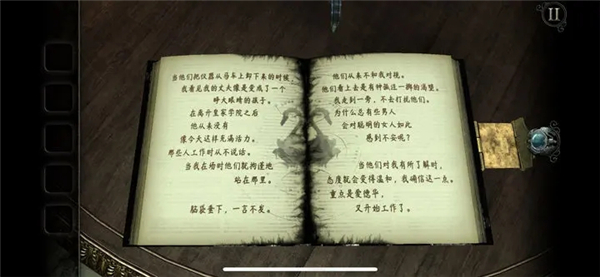 当他们把仪器从马车上卸下来的时候,
我看见我的丈夫像是变成了一个
睁大眼睛的孩子。
在离开皇家学院之后
他从未没有
像今天这样充满活力。
那些人工作时从不说话。
当我在场时他们就拘谨地
站在那里。
脑袋垂下,一言不发。
他们从来不和我对视。
他们看上去是有种振达一搏的渴望。
我走到一旁,不去打扰他们。
为什么总有些男人
会对聪明的女人如此
感到不安呢?
当他们对我有所了解时,
态度就会变得温和,我确信这一点。
重点是爱德华,
又开始工作了。